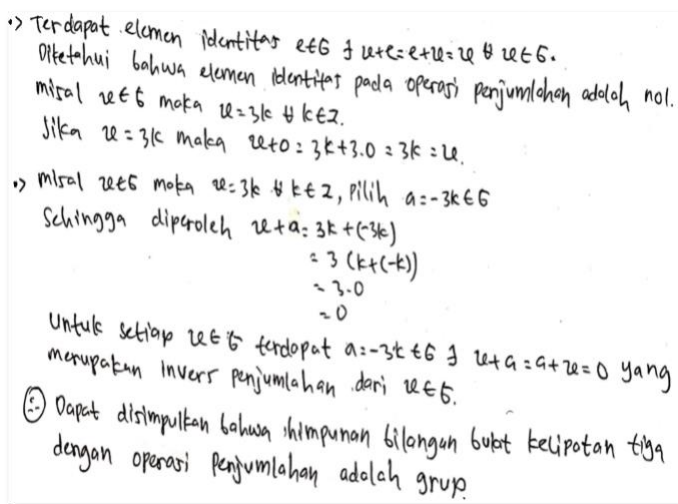 •> Terdapat elemen identitas e∈G ∋ x+e=e+x=x ∀ x∈G.
Diketahui bahwa elemen identitas pada operasi penjumlahan adalah nol.
misal x∈G maka x=3k ∀ k∈Z.
Jika x=3k maka x+0=3k+3.0=3k=x.
•> misal x∈G maka x=3k ∀ k∈Z, Pilih a=-3k∈G
Sehingga diperoleh x+a=3k+(-3k)
=3(k+(-k))
=3.0
=0
Untuk setiap x∈G terdapat a=-3k∈G ∋ x+a=a+x=0 yang
merupakan invers penjumlahan dari x∈G.
∴ Dapat disimpulkan bahwa himpunan bilangan bulat kelipatan tiga
dengan operasi penjumlahan adalah grup.